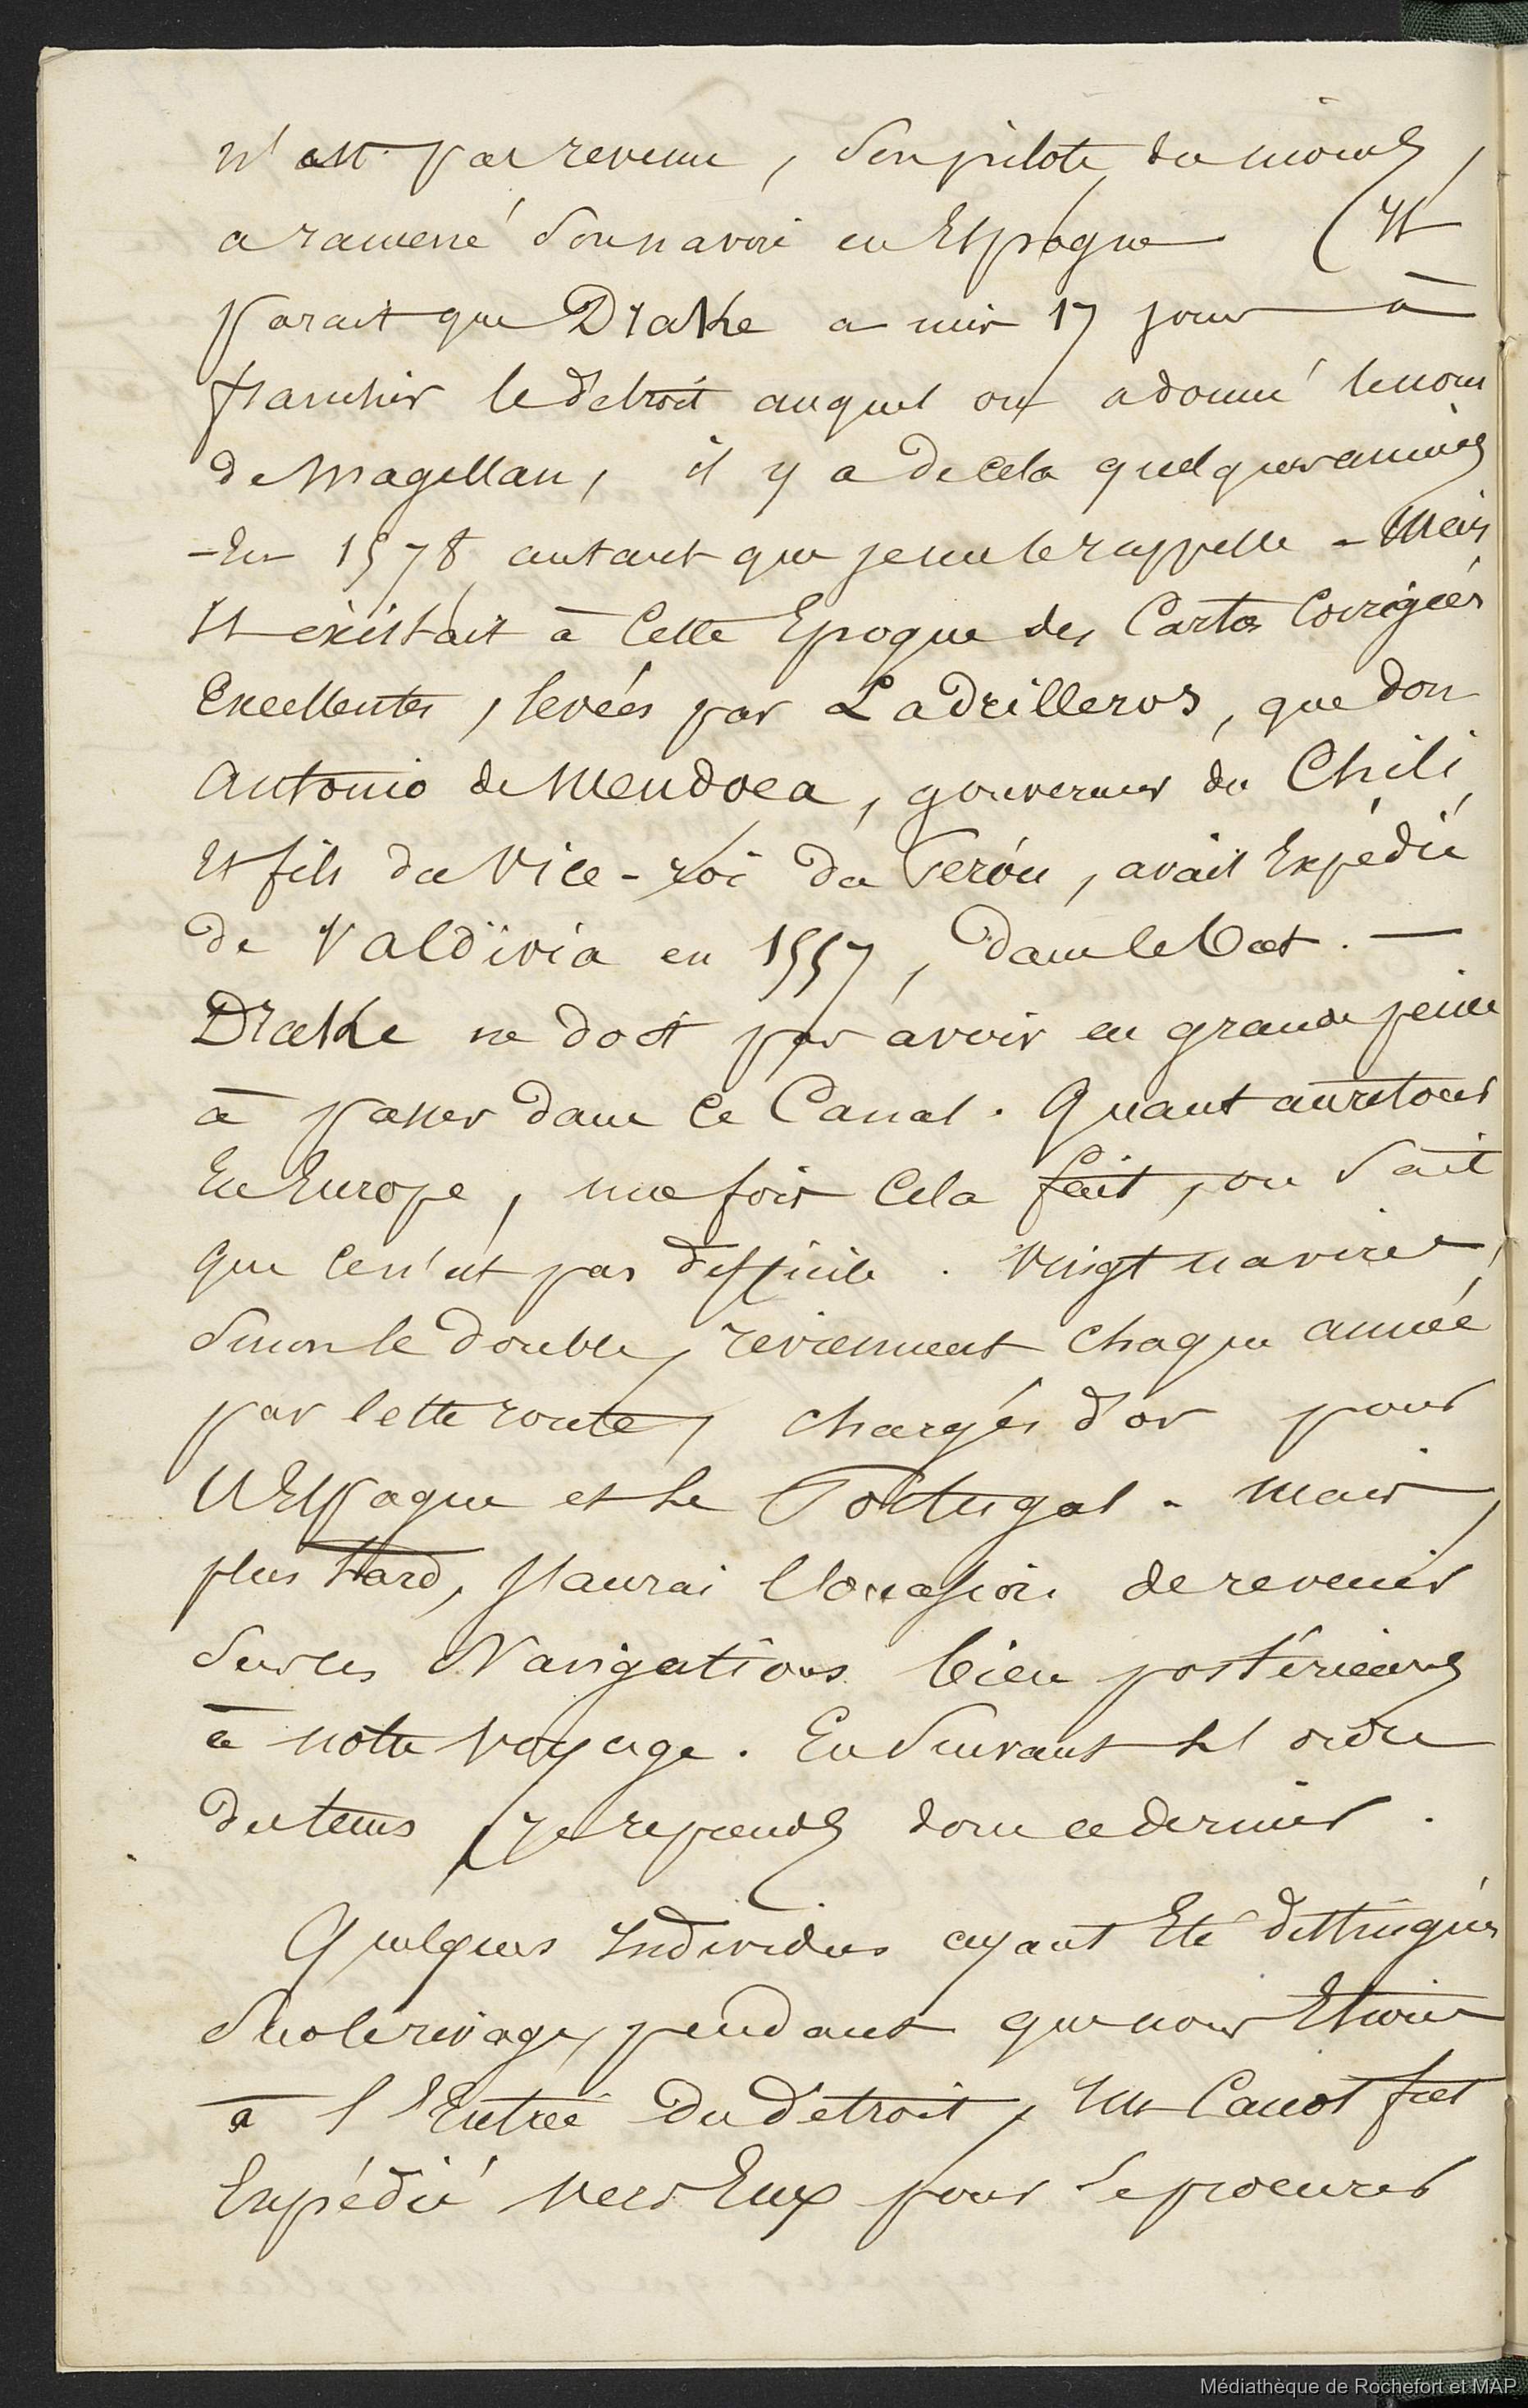 n'est pas revenu, son pilote, du moins,
a ramené son navire en Espagne (Il
parait que Drake a mis 17 jours à
franchir le détroit auquel on a donné le nom
de Magellan, il y a de cela quelques années
- En 1578, autant que je me le rappelle - Mais,
Il existait à cette Epoque des Cartes Corrigées
Excellentes, levées par Ladrilleros, que Don
Antonio de Mendoca, gouverneur du Chili,
Et fils du Vice-roi du Pérou, avait Expédié
de Valdivia en 1557, dans le but. —
Drake ne doit pas avoir eu grande peine
à passer dans ce Canal. Quant au retour
En Europe, une fois cela fait, on sait
que ce n'est pas difficile. Vingt navires,
sinon le double, reviennent chaque année
par cette route, chargés d'or pour
l'Espagne et le Portugal. Mais,
plus tard, j'aurai l'occasion de revenir
sur ces Navigations bien postérieures
à notre voyage. En suivant l'ordre
du tems je reprends donc ce dernier.
Quelques Individus ayant Eté distingués
sur le rivage, pendant que nous Etions
à l'Entrée du détroit, un Canot fut
Expédié vers Eux pour se procurer
Médiathèque de Rochefort et MAP